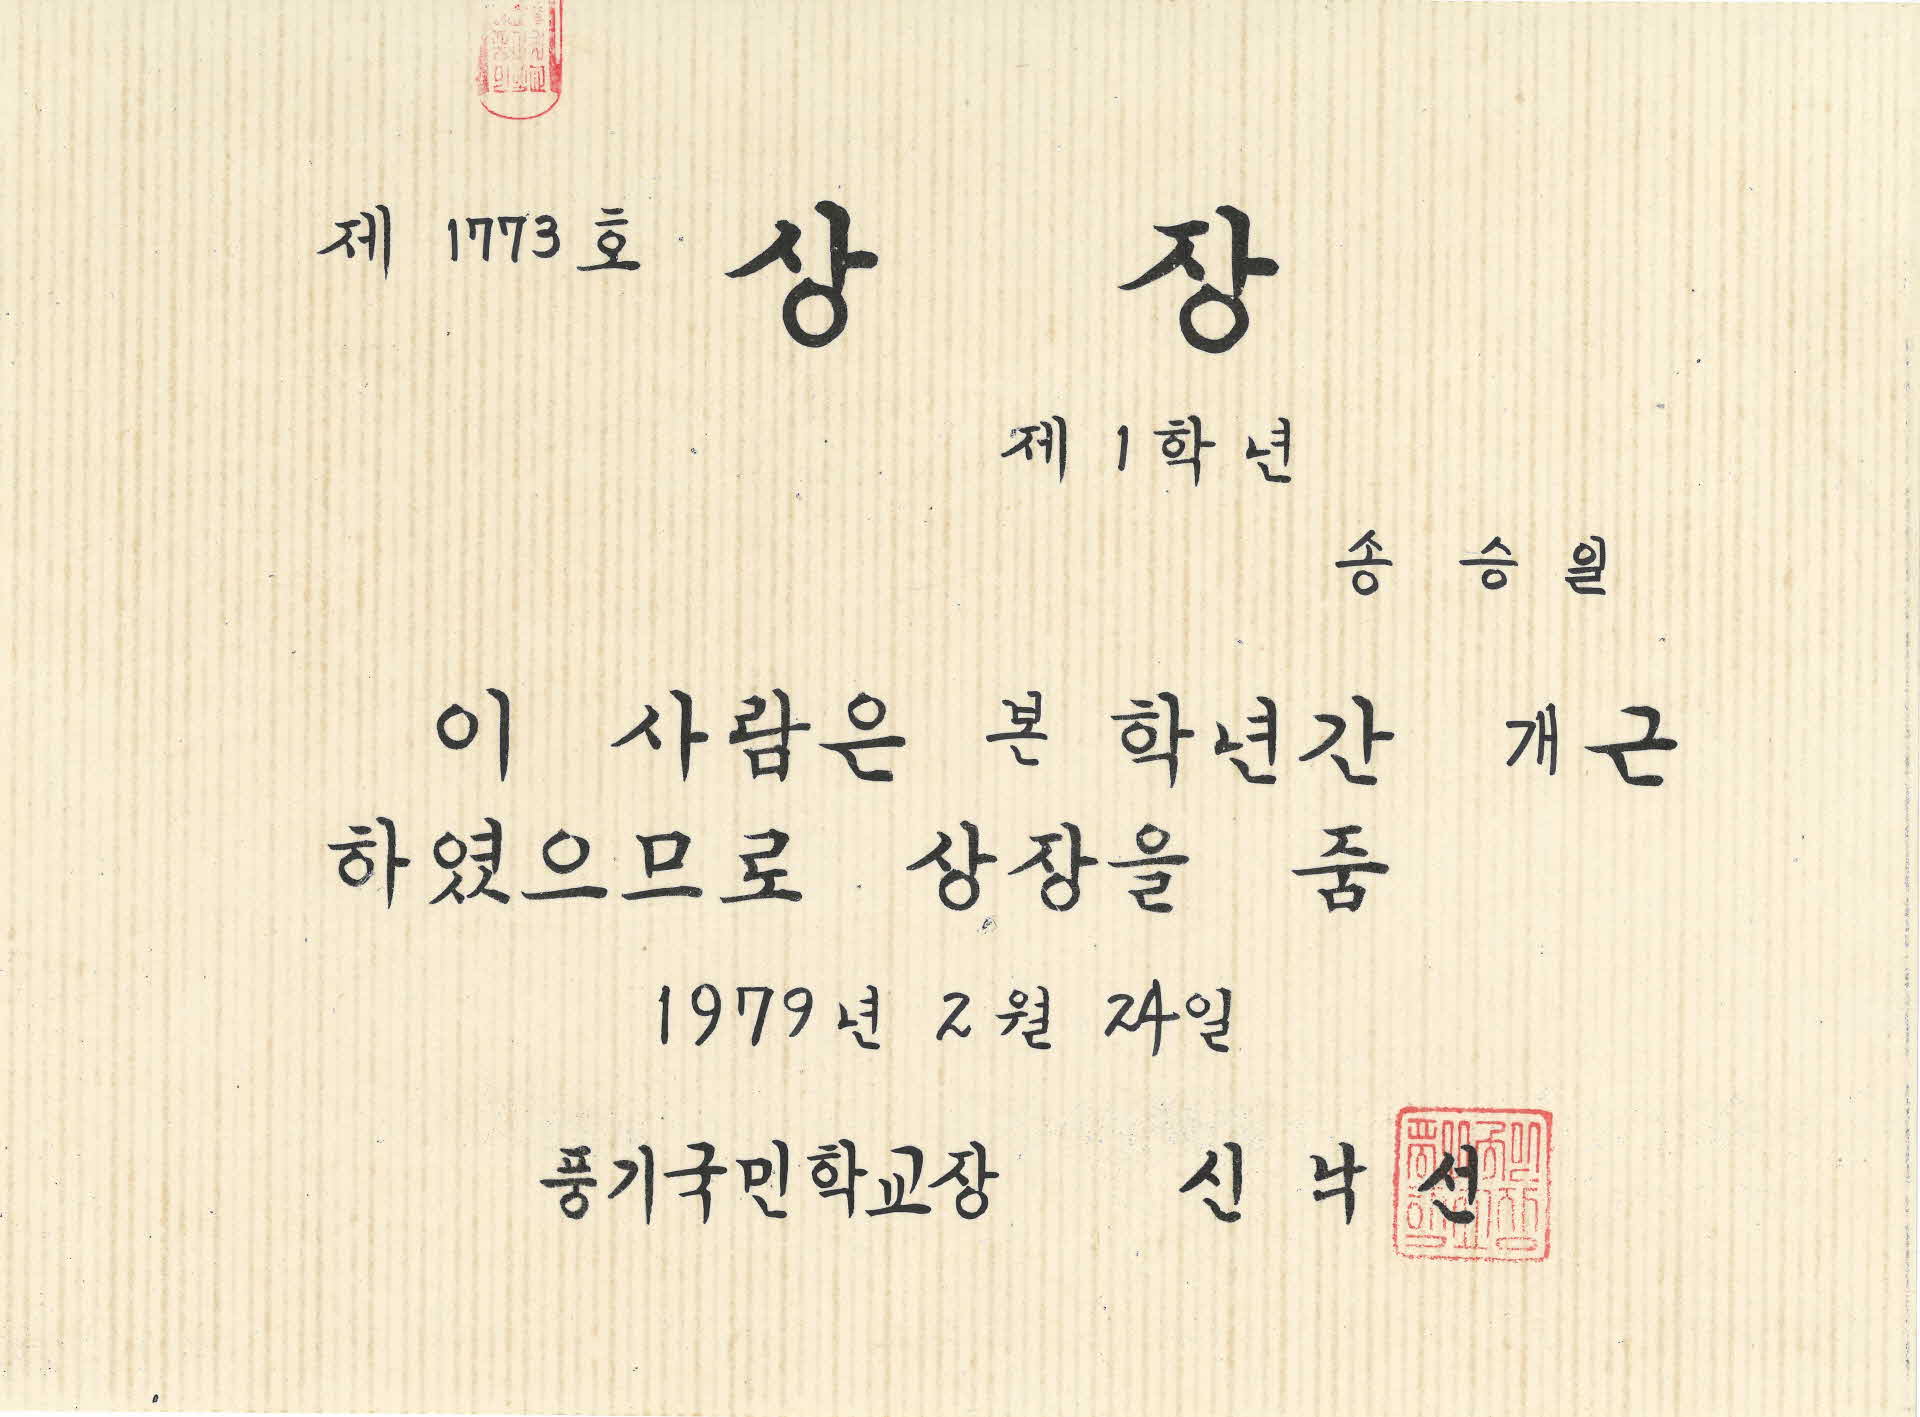 제 1773호 상 장
제 1 학년
송 승 일
이 사람은 본 학년간 개근
하였으므로 상장을 줌
1979년 2월 24일
풍기국민학교장 신 낙 선